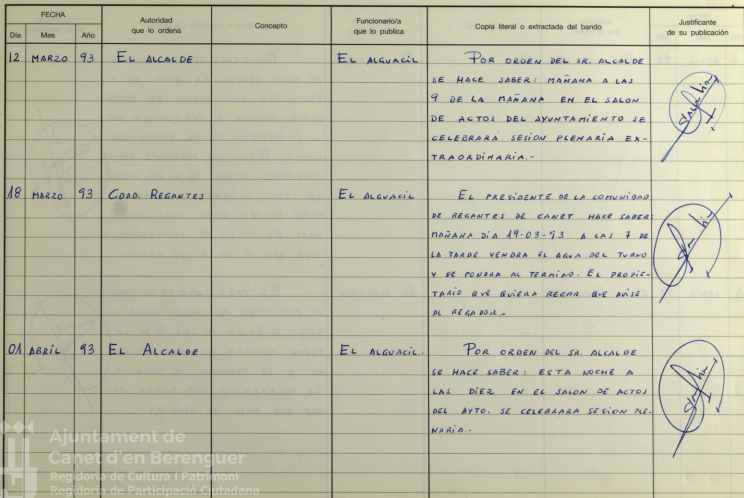 FECHA
Día Mes Año
Autoridad
que lo ordena
Concepto
Funcionario/a
que lo publica
Copia literal o extractada del bando
Justificante
de su publicación
12 MARZO 93 EL ALCALDE EL ALGUACIL POR ORDEN DEL SR. ALCALDE
SE HACE SABER: MAÑANA A LAS
9 DE LA MAÑANA EN EL SALON
DE ACTOS DEL AYUNTAMIENTO SE
CELEBRARÁ SESION PLENARIA EX-
TRAORDINARIA.-
18 MARZO 93 CDAD. REGANTES EL ALGUACIL EL PRESIDENTE DE LA COMUNIDAD
DE REGANTES DE CANET HACE SABER:
MAÑANA DÍA 19-03-93 A LAS 7 DE
LA TARDE VENDRA EL AGUA DEL TURNO
Y SE PONDRA AL TERMINO. EL PROPIE-
TARIO QUE QUIERA REGAR QUE AVISE
AL REGADOR.-
01 ABRIL 93 EL ALCALDE EL ALGUACIL. POR ORDEN DEL SR. ALCALDE
SE HACE SABER: ESTA NOCHE A
LAS DIEZ EN EL SALON DE ACTOS
DEL AYTO. SE CELEBRARA SESION PLE-
NARIA.-
Ajuntament de
Canet d'en Berenguer
Regidoria de Cultura i Patrimoni
Regidoria de Participació Ciutadana